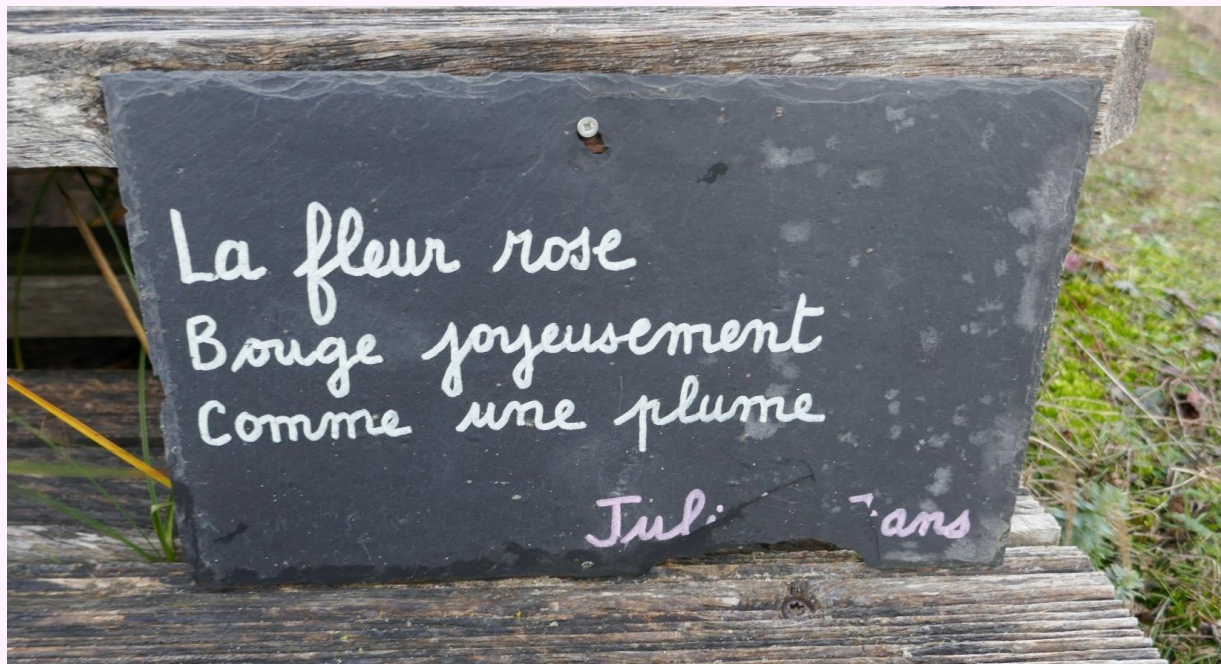 La fleur rose
Bouge joyeusement
Comme une plume
ans